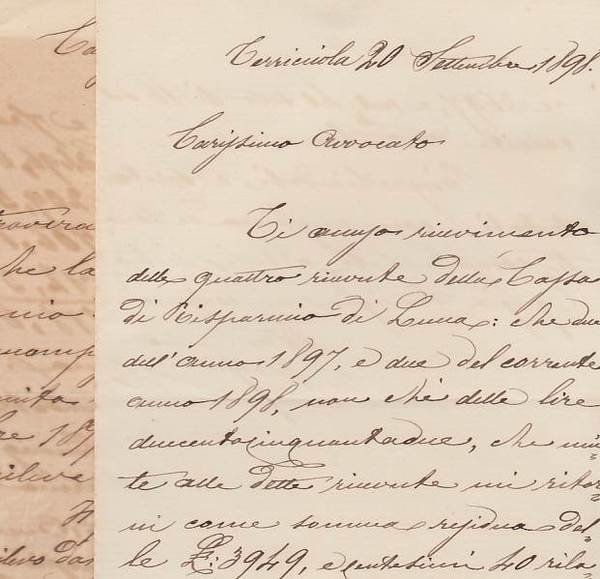 Terricciola 20 Settembre 1898.
Carissimo Avvocato
Ti accuso ricevimento
delle quattro ricevute della Cassa
di Risparmio di Lucca: che due
dell'anno 1897, e due del corrente
anno 1898, non chè delle lire
duecentocinquantadue, che uni=
te alle dette ricevute mi ritor=
ni come somma residua del=
le £: 3949, e centesimi 40 rila=